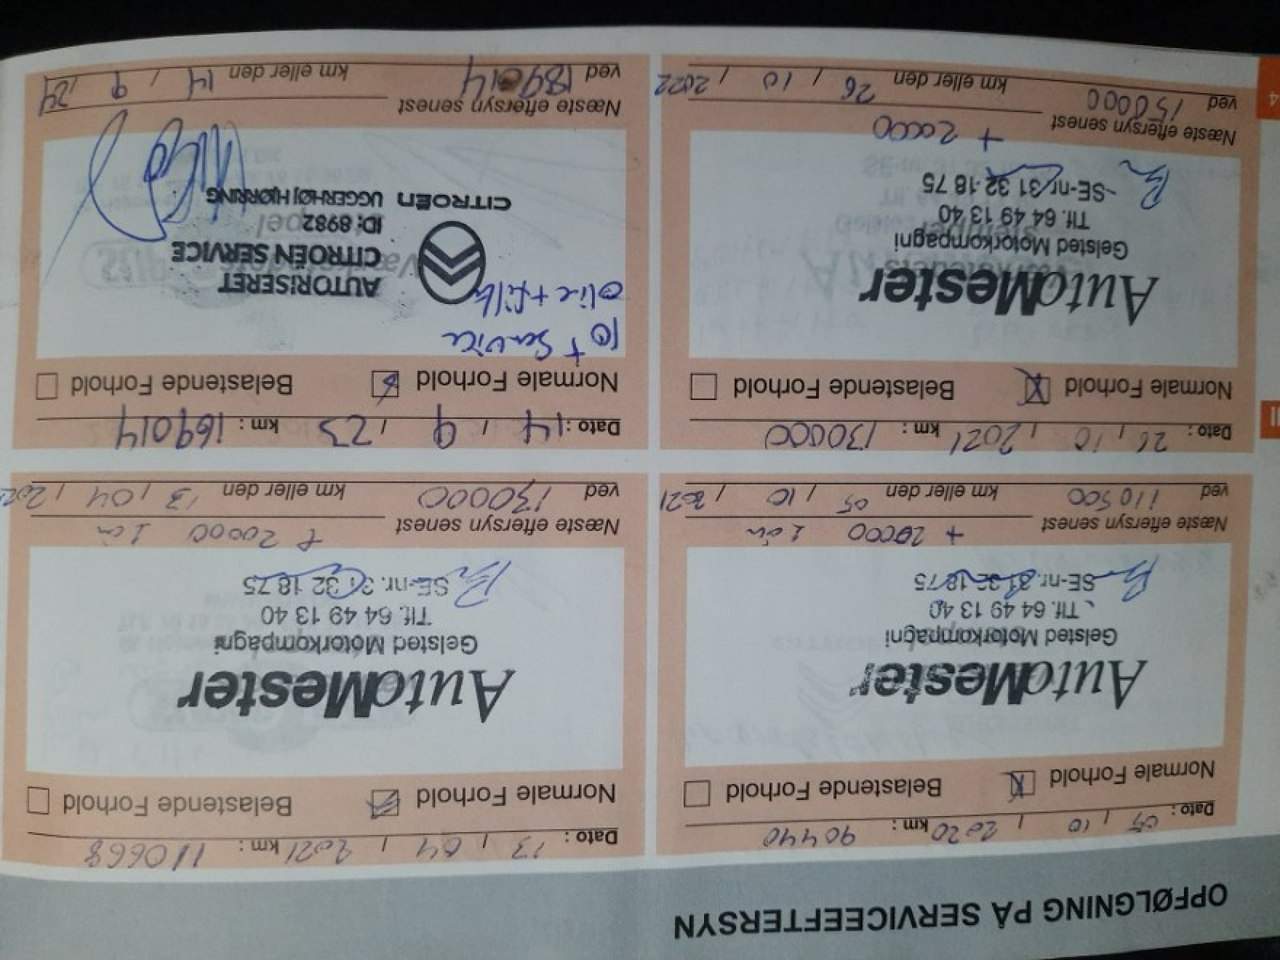 OPFØLGNING PÅ SERVICEEFTERSYN
Dato : 05 / 10 / 2020 km : 90440
Normale Forhold Belastende Forhold
AutoMester
Gelsted Motorkompagni
Tlf. 64 49 13 40
SE-nr. 31 32 18 75
+ 20000 1 år
Næste eftersyn senest
ved 110500 km eller den 05 / 10 / 2021
Dato : 13 / 04 / 2021 km : 110668
Normale Forhold Belastende Forhold
AutoMester
Gelsted Motorkompagni
Tlf. 64 49 13 40
SE-nr. 31 32 18 75
+ 20000 1 år
Næste eftersyn senest
ved 130000 km eller den 13 / 04 /
Dato : 26 / 10 / 2021 km : 130000
Normale Forhold Belastende Forhold
AutoMester
Gelsted Motorkompagni
Tlf. 64 49 13 40
SE-nr. 31 32 18 75
+ 20000
Næste eftersyn senest
ved 150000 km eller den 26 / 10 / 2022
Dato : 14 / 9 / 23 km : 169014
Normale Forhold Belastende Forhold
+ Service
olie + filter
AUTORISERET
CITROËN SERVICE
ID: 8982
CITROËN UGGERHØJ HJØRRING
Næste eftersyn senest
ved 189014 km eller den 14 / 9 / 24
4
II